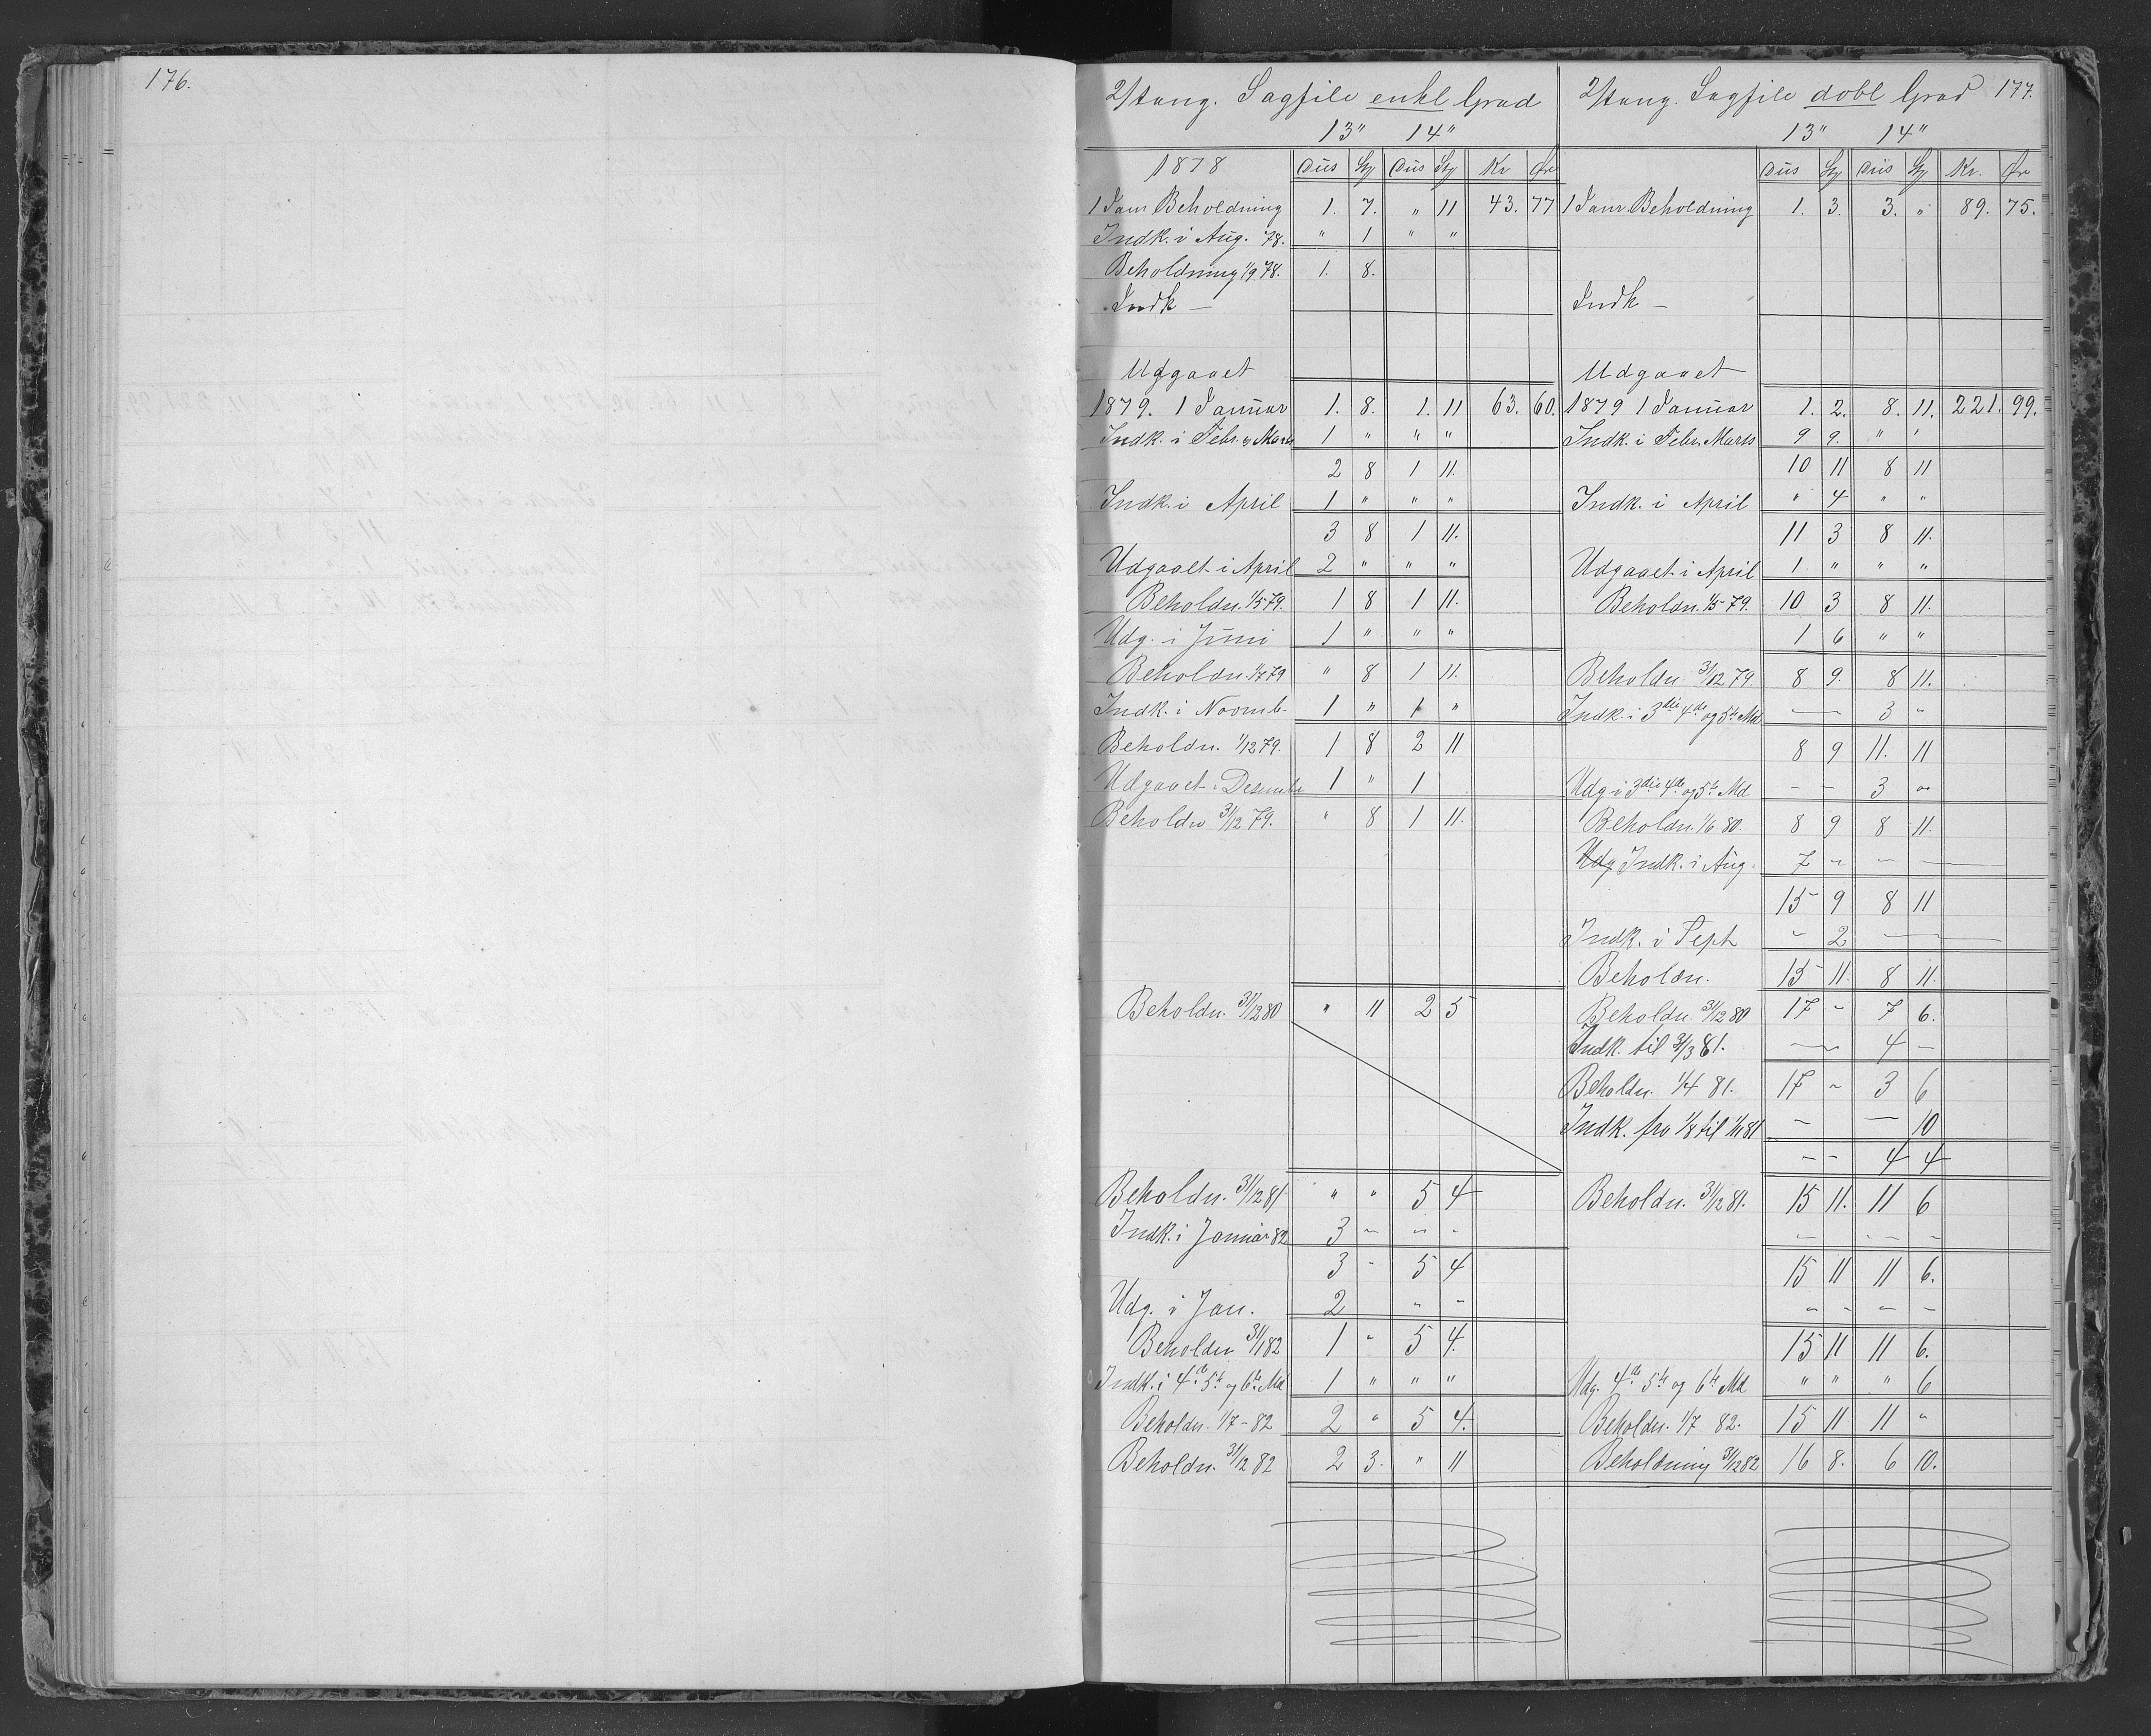 176.
2/tang. Sagfile enkl Grad
13" 14"
1878 Dus Sty Dus Sty Kr Øre
1 Janr Beholdning 1. 7. " 11 43. 77
Indk. i Aug. 78. " 1 " "
Beholdning 1/9 78. 1. 8.
Indk —
Udgaaet
1879. 1 Januar 1. 8. 1. 11 63. 60.
Indk. i Febr. og Marts 1 " " "
2 8 1 11.
Indk. i April 1 " " "
3 8 1 11.
Udgaaet i April 2 " " "
Beholdn. 1/5 79. 1 8 1 11.
Udg. i Juni 1 " " "
Beholdn. 1/7 79 " 8 1 11.
Indk. i Novmb. 1 " 1 "
Beholdn. 1/12 79. 1 8 2 11
Udgaaet i Desembr 1 " 1
Beholdn 31/12 79. " 8 1 11.
Beholdn. 31/12 80 " 11 2 5
Beholdn. 31/12 81 " " 5 4
Indk. i Januar 82 3 - - -
3 - 5 4
Udg. i Jan. 2 - -
Beholdn 31/1 82 1 - 5 4.
Indk. i 4de 5te og 6te Md 1 " " "
Beholdn. 1/7 - 82 2 " 5 4.
Beholdn. 31/12 82 2 3. " 11
2/tang. Sagfile dobl Grad 177.
13" 14"
Dus Sty Dus Sty Kr. Øre
1 Janr. Beholdning 1. 3. 3. " 89. 75.
Indk —
Udgaaet
1879 1 Januar 1. 2. 8. 11. 221. 99.
Indk. i Febr. Marts 9 9. " "
10 11 8 11
Indk. i April " 4 " "
11 3 8 11.
Udgaaet i April 1 " " "
Beholdn. 1/5 79. 10 3 8 11.
1 6 " "
Beholdn. 31/12 79. 8 9. 8 11.
Indk. i 3die 4de og 5te Md — 3 -
8 9 11. 11
Udg i 3die 4de og 5te Md - - 3 -
Beholdn. 1/6 80. 8 9 8 11.
Udg Indk. i Aug. 7 - - —
15 9 8 11
Indk. i Sept - 2 —
Beholdn. 15 11. 8 11.
Beholdn. 31/12 80 17 - 7 6.
Indk. til 31/3 81. — 4 -
Beholdn. 1/4 81. 17 - 3 6
Indk. fra 1/8 til 1/11 81 - — 10
- - 4 4
Beholdn. 31/12 81. 15 11. 11 6
- - - -
15 11 11 6.
- - - -
15 11 11 6.
Udg. 4de 5te og 6te Md " " " 6
Beholdn. 1/7 82. 15 11 11 "
Beholdning 31/12 82 16 8. 6 10.